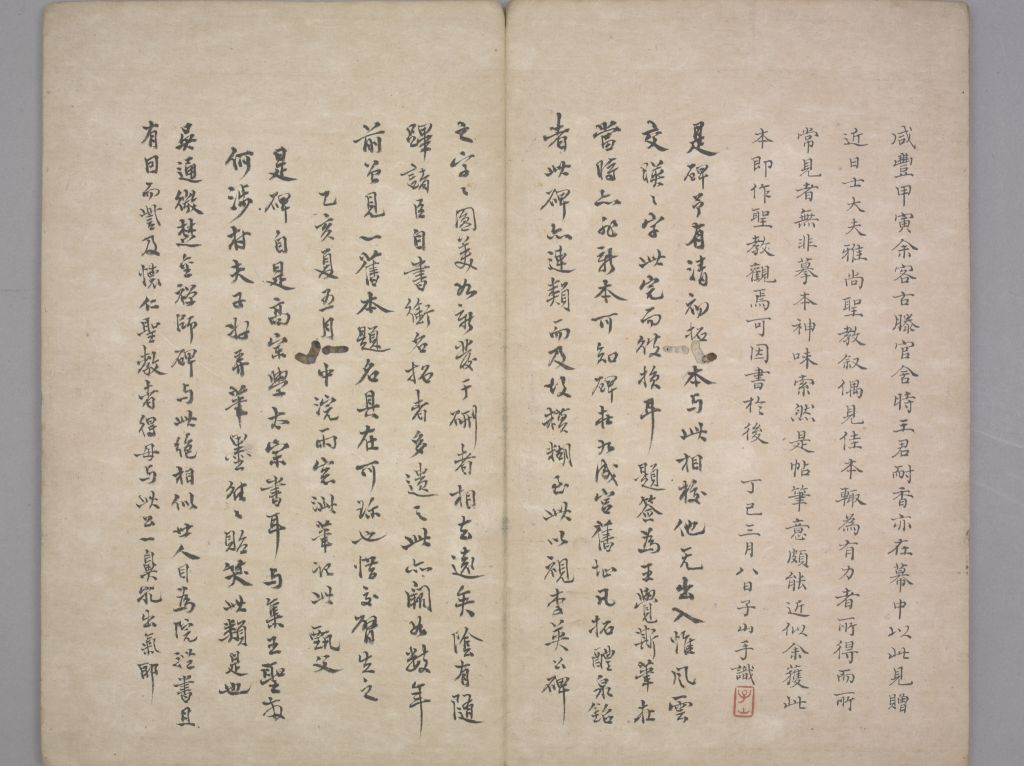 咸豐甲寅余客古滕官舍時王君耐香亦在幕中以此見贈
近日士大夫雅尚聖教叙偶見佳本輙為有力者所得而所
常見者無非摹本神味索然是帖筆意頗能近似余獲此
本即作聖教觀焉可因書於後 丁巳三月八日子山手識
子山
是碑予有清初拓本与此相校他无出入惟风雲
交漢字此完而彼損耳 題簽為王覺斯筆在
當時亦非新本可知碑在九成宮舊址凡拓醴泉銘
者此碑亦連類而及故模糊至此以視李英公碑
之字〻圓美如新發于硎者相去遠矣陰有隨
蹕諸臣自書銜名拓者多遺之此亦闕如数年
前曾見一舊本題名具在可珎也惜交臂失之
乙亥夏五月中浣雨窓泚筆記此 甄父
是碑自是高宗學太宗書耳 与集王聖教
何涉村夫子好弄筆墨往〻貽笑此類是也
吳通微楚金禪師碑与此絕相似世人目為院體書且
有目而訾及懷仁聖教者得毋与此公一鼻孔出氣耶